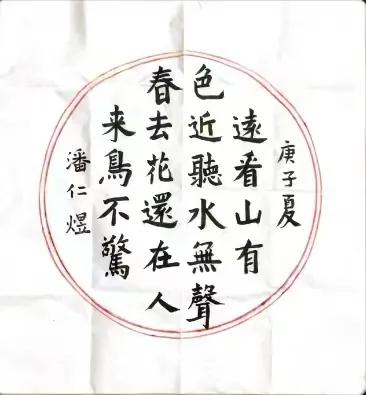 庚子夏
遠看山有
色近聽水無聲
春去花還在人
来鳥不驚
潘仁煜